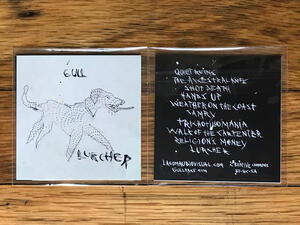 GULL
LURCHER
QUIET RUINS
THE ANCESTRAL KNIFE
SHOT DEATH
HANDS UP
WEATHER ON THE COAST
CAMPLY
TRICHOTILLOMANIA
WALK OF THE CARPENTER
RELIGION'S MONEY
LURCHER
CREATIVE COMMONS
BY-NC-SA